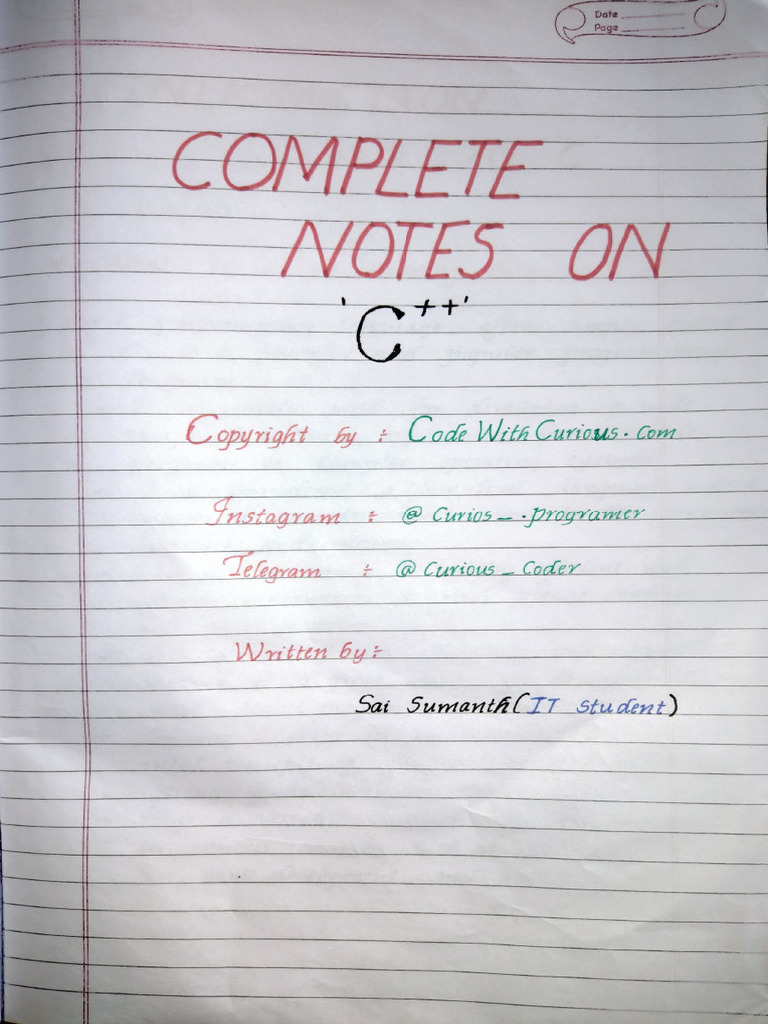 Date
Page
COMPLETE
NOTES ON
'C++'
Copyright by ÷ CodeWithCurious.com
Instagram ÷ @ Curios_.programer
Telegram ÷ @ Curious_Coder
Written by ÷
Sai Sumanth (IT Student)